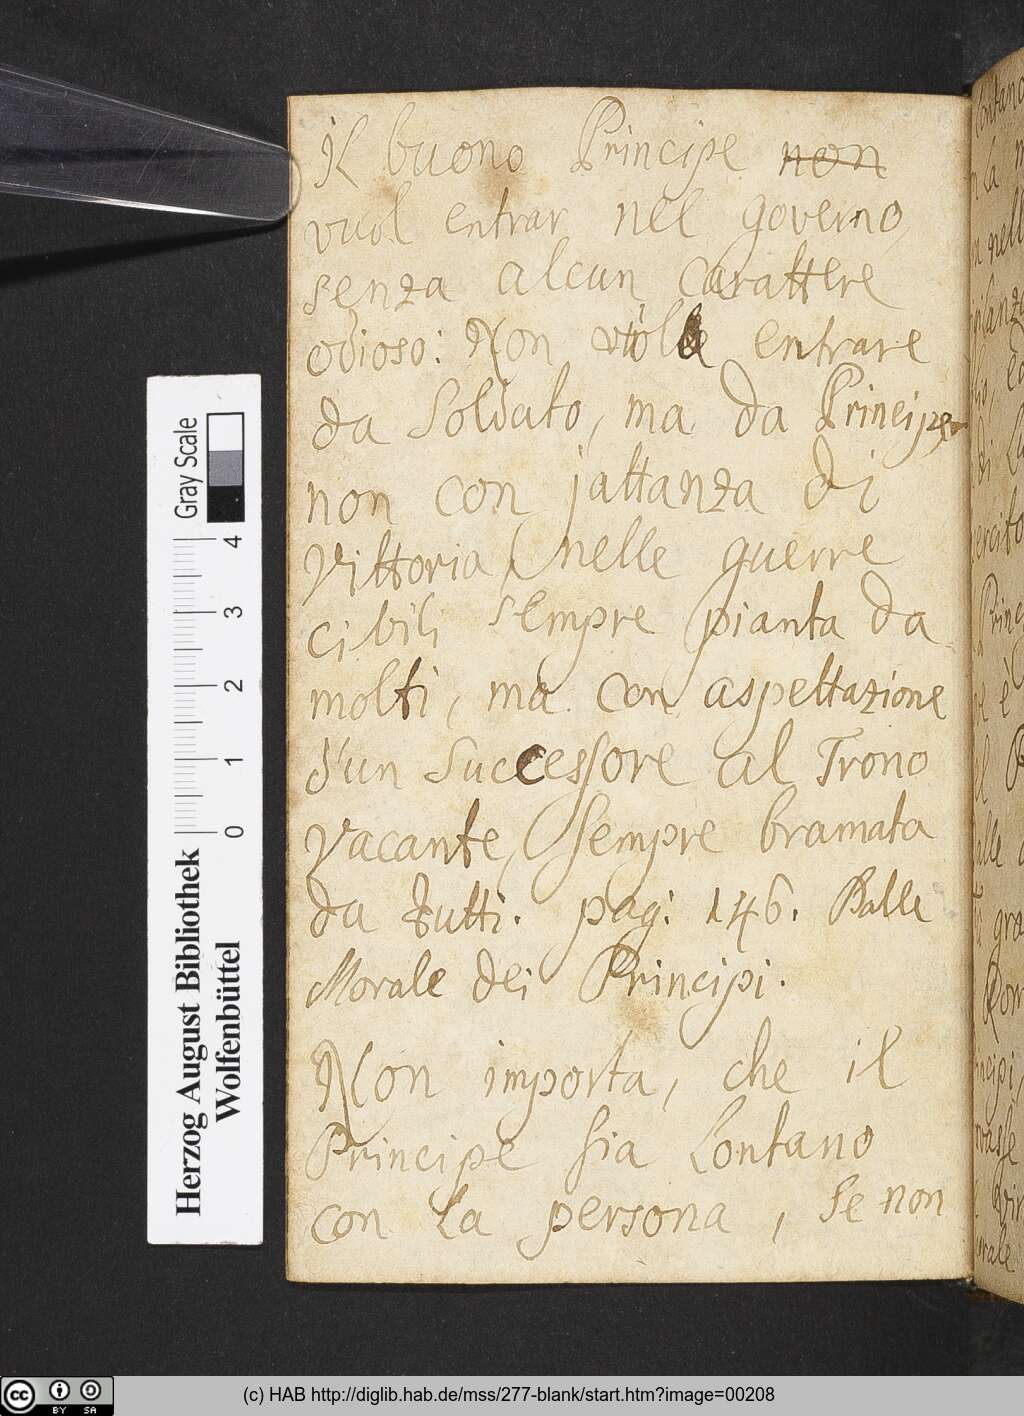 Il buono Principe non
vuol entrar nel governo
senza alcun carattere
odioso: Non vuol entrare
da Soldato, ma da Principe
non con jattanza di
Vittoria, nelle guerre
cibili sempre pianta da
molti, ma con aspettazione
d'un Successore al Trono
Vacante, sempre bramata
da tutti. pag: 146. Balle
Morale dei Principi.
Non importa, che il
Principe sia Lontano
con la persona, se non
Gray Scale
4
3
2
1
0
Herzog August Bibliothek
Wolfenbüttel
cc BY SA
(c) HAB http://diglib.hab.de/mss/277-blank/start.htm?image=00208